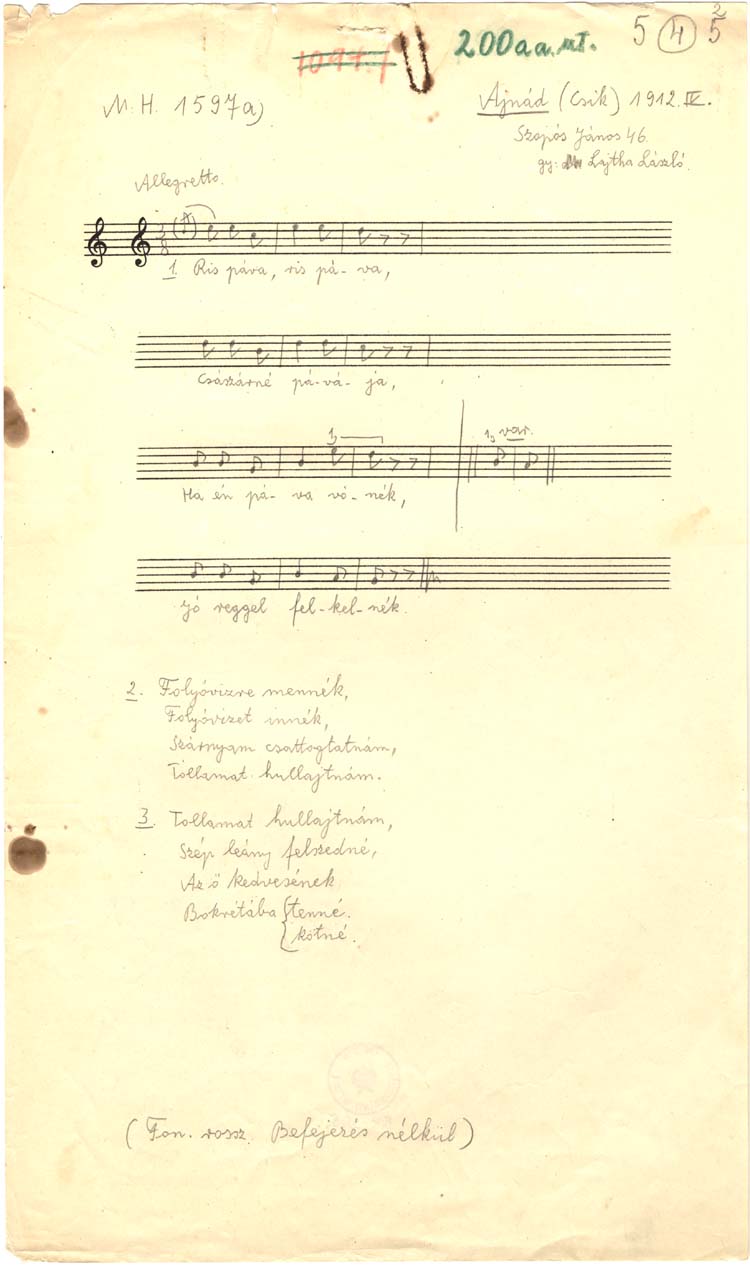 1097./
200aa.mt.
5 4 5
2
M. H. 1597a)
Ajnád (Csik) 1912. IV.
Szopós János 46.
gy: Lajtha László.
Allegretto.
3
8
1. Ris páva, ris pá-va,
Császárné pá-vá-ja,
1,3
1,3 var.
Ha én pá-va vó-nék,
Jó reggel fel-kel-nék.
2. Folyóvizre mennék,
Folyóvizet innék,
Szárnyam csattogtatnám,
Tollamat hullajtnám.
3. Tollamat hullajtnám,
Szép leány felszedné,
Az ő kedvesének
Bokrétába { tenné.
kötné.
(Fon. rossz. Befejezés nélkül)